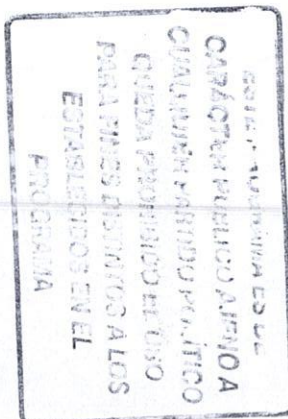 ESTE PROGRAMA ES DE
CARÁCTER PUBLICO AJENO A
CUALQUIER PARTIDO POLÍTICO
QUEDA PROHIBIDO EL USO
PARA FINES DISTINTOS A LOS
ESTABLECIDOS EN EL
PROGRAMA